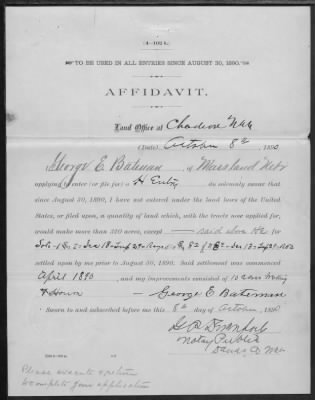 (4-102 b.)
TO BE USED IN ALL ENTRIES SINCE AUGUST 30, 1890.
AFFIDAVIT.
Land Office at Chadron Neb
(Date) October 8th, 1890
George E. Bateman, of Marsland Nebr
applying to enter (or file for) a H Entry, do solemnly swear that
since August 30, 1890, I have not entered under the land laws of the United
States, or filed upon, a quantity of land which, with the tracts now applied for,
would make more than 320 acres, except — said above
settled upon by me prior to August 30, 1890. Said settlement was commenced
April 1890, and my improvements consisted of 10 acres
& House — George E Bateman
Sworn to and subscribed before me this 8th day of October, 1890
Notary Public
Dawes Co Neb
Please execute & return
to complete your application